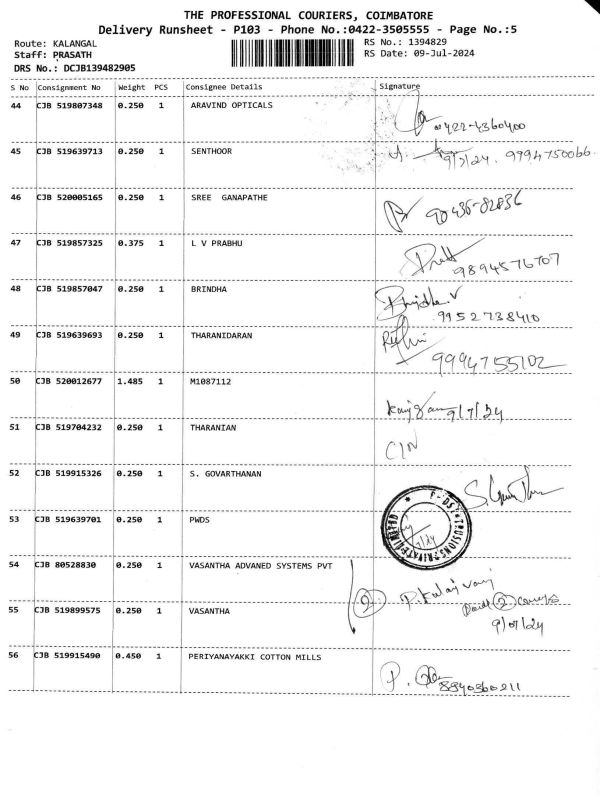 THE PROFESSIONAL COURIERS, COIMBATORE
Delivery Runsheet - P103 - Phone No.:0422-3505555 - Page No.:5
Route: KALANGAL
RS No.: 1394829
Staff: PRASATH
RS Date: 09-Jul-2024
DRS No.: DCJB139482905
S No Consignment No Weight PCS Consignee Details Signature
44 CJB 519807348 0.250 1 ARAVIND OPTICALS
0422-4360400
45 CJB 519639713 0.250 1 SENTHOOR
9/7/24. 9994750066
46 CJB 520005165 0.250 1 SREE GANAPATHE
90436-82836
47 CJB 519857325 0.375 1 L V PRABHU
9894576707
48 CJB 519857047 0.250 1 BRINDHA
Brindha.V
9952738410
49 CJB 519639693 0.250 1 THARANIDARAN
9994755102
50 CJB 520012677 1.485 1 M1087112
9/7/24
51 CJB 519704232 0.250 1 THARANIAN
52 CJB 519915326 0.250 1 S. GOVARTHANAN
53 CJB 519639701 0.250 1 PWDS
54 CJB 80528830 0.250 1 VASANTHA ADVANED SYSTEMS PVT
2 P. Kalaivani
55 CJB 519899575 0.250 1 VASANTHA
9/07/24
56 CJB 519915490 0.450 1 PERIYANAYAKKI COTTON MILLS
8940360211